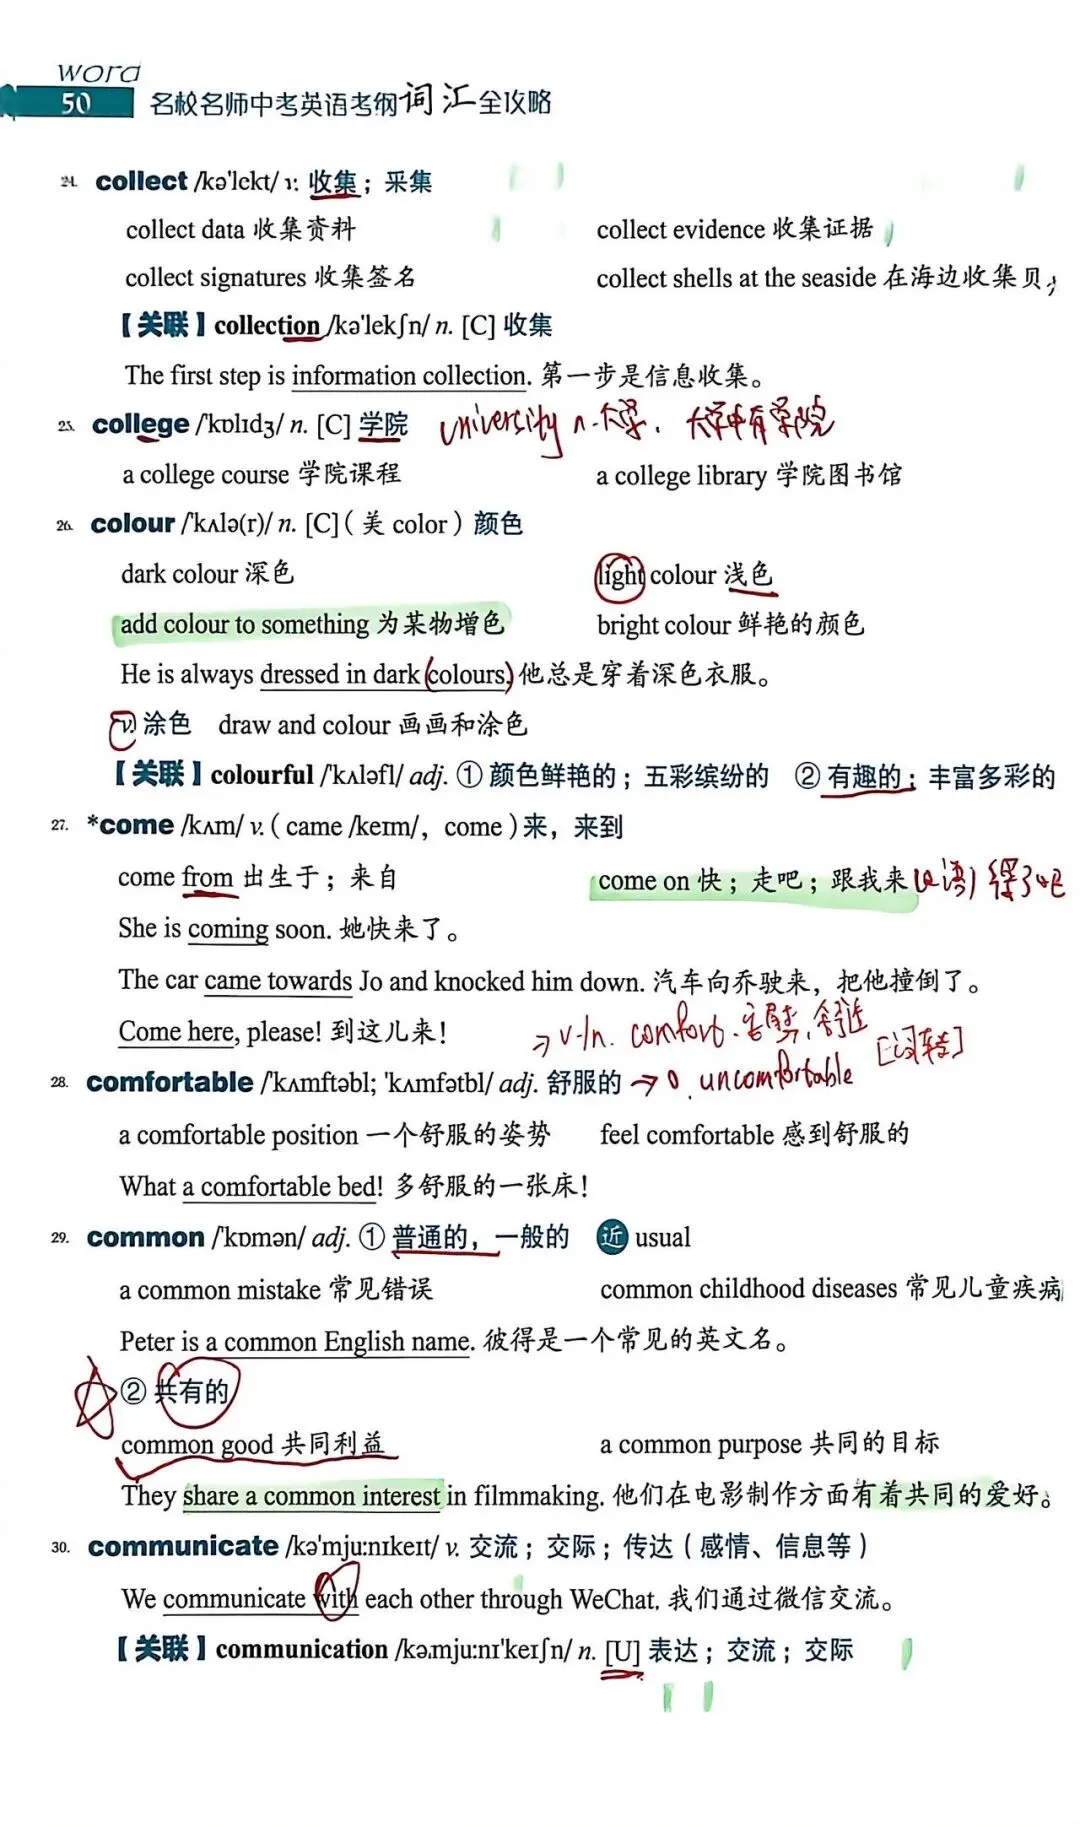 word
50 名校名师中考英语考纲词汇全攻略
24. collect /kə'lekt/ v. 收集；采集
collect data 收集资料 collect evidence 收集证据
collect signatures 收集签名 collect shells at the seaside 在海边收集贝
【关联】collection /kə'lekʃn/ n. [C] 收集
The first step is information collection. 第一步是信息收集。
25. college /'kɒlɪdʒ/ n. [C] 学院 university n. 大学. 大学中有学院
a college course 学院课程 a college library 学院图书馆
26. colour /'kʌlə(r)/ n. [C]（美 color）颜色
dark colour 深色 light colour 浅色
add colour to something 为某物增色 bright colour 鲜艳的颜色
He is always dressed in dark colours. 他总是穿着深色衣服。
v. 涂色 draw and colour 画画和涂色
【关联】colourful /'kʌləfl/ adj. ① 颜色鲜艳的；五彩缤纷的 ② 有趣的；丰富多彩的
27. *come /kʌm/ v.（came /keɪm/，come）来，来到
come from 出生于；来自 come on 快；走吧；跟我来 (口语) 得了吧
She is coming soon. 她快来了。
The car came towards Jo and knocked him down. 汽车向乔驶来，把他撞倒了。
Come here, please! 到这儿来！ → v./n. comfort. 安慰, 舒适
[词转]
28. comfortable /'kʌmftəbl; 'kʌmfətbl/ adj. 舒服的 → uncomfortable
a comfortable position 一个舒服的姿势 feel comfortable 感到舒服的
What a comfortable bed! 多舒服的一张床！
29. common /'kɒmən/ adj. ① 普通的，一般的 近 usual
a common mistake 常见错误 common childhood diseases 常见儿童疾病
Peter is a common English name. 彼得是一个常见的英文名。
② 共有的
common good 共同利益 a common purpose 共同的目标
They share a common interest in filmmaking. 他们在电影制作方面有着共同的爱好。
30. communicate /kə'mju:nɪkeɪt/ v. 交流；交际；传达（感情、信息等）
We communicate with each other through WeChat. 我们通过微信交流。
【关联】communication /kəˌmju:nɪ'keɪʃn/ n. [U] 表达；交流；交际